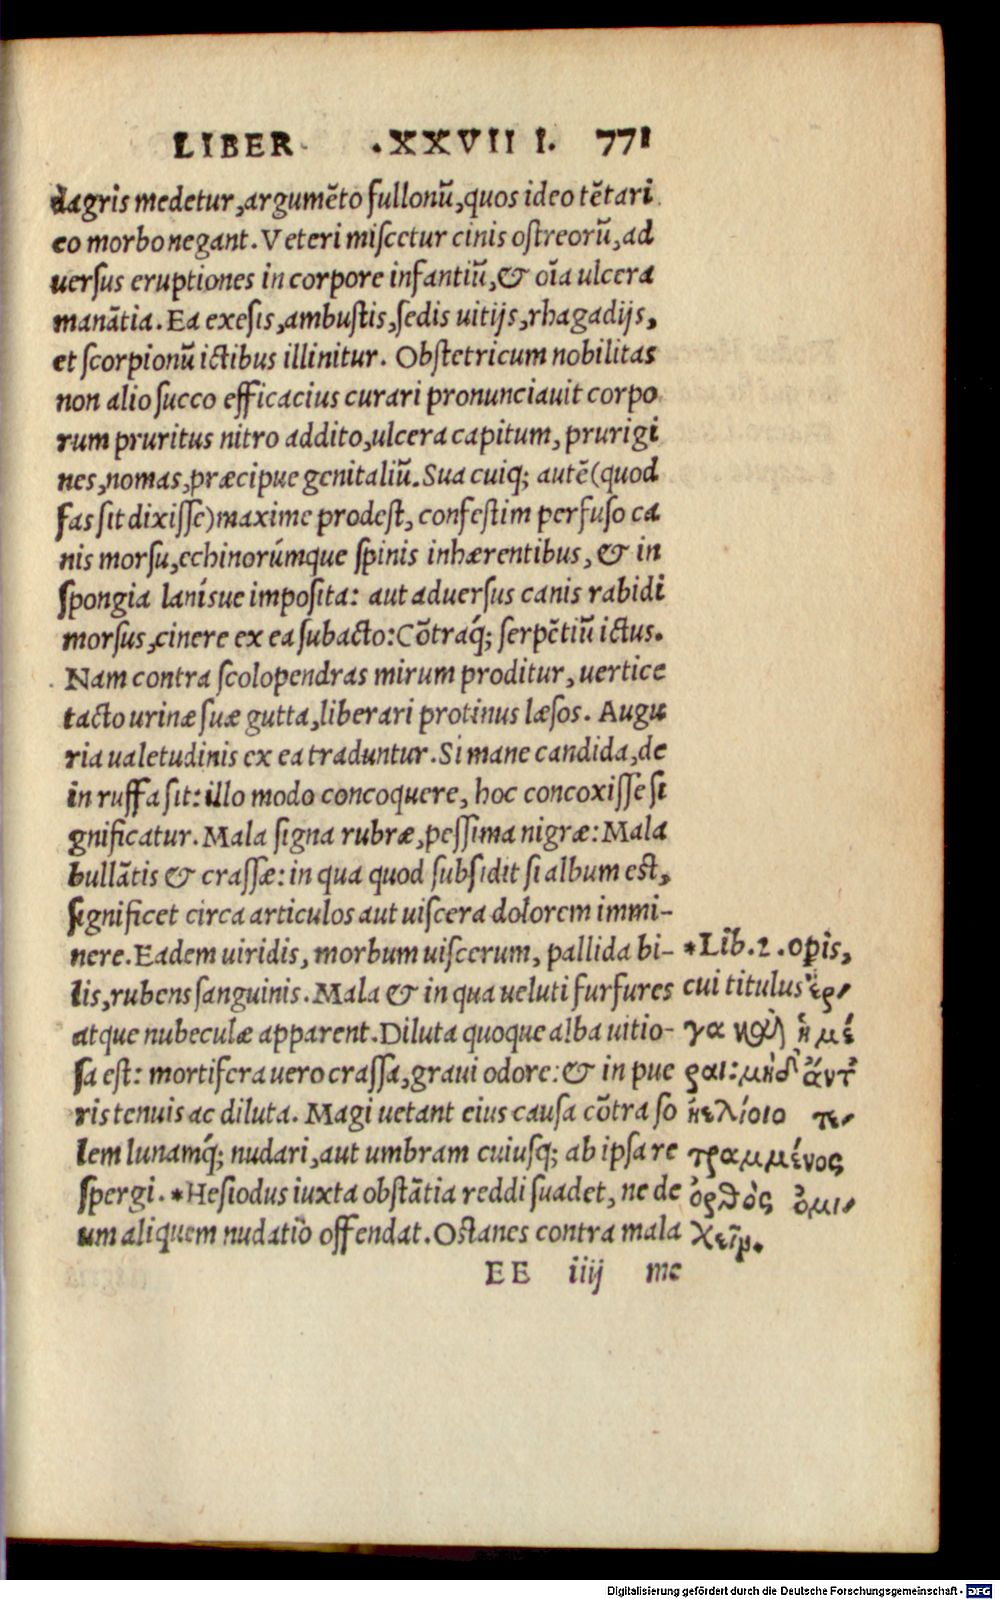 LIBER .XXVIII. 771
dagris medetur,argumẽto fullonũ,quos ideo tẽtari
eo morbo negant.Veteri miſcetur cinis oſtreorũ,ad
uerſus eruptiones in corpore infantiũ,& oĩa ulcera
manãtia.Ea exeſis,ambuſtis,ſedis uitijs,rhagadijs,
et ſcorpionũ ictibus illinitur. Obſtetricum nobilitas
non alio ſucco efficacius curari pronunciauit corpo
rum pruritus nitro addito,ulcera capitum, prurigi
nes,nomas,præcipue genitaliũ.Sua cuiq; autẽ(quod
fas ſit dixiſſe)maxime prodeſt, confeſtim perfuſo ca
nis morſu,echinorúmque ſpinis inhærentibus, & in
ſpongia lanísue impoſita: aut aduerſus canis rabidi
morſus,cinere ex ea ſubacto:Cõtraq́; ſerpẽtiũ ictus.
Nam contra ſcolopendras mirum proditur, uertice
tacto urinæ ſuæ gutta,liberari protinus læſos. Augu
ria ualetudinis ex ea traduntur.Si mane candida,de
in ruffa ſit: illo modo concoquere, hoc concoxiſſe ſi
gnificatur.Mala ſigna rubræ,peſſima nigræ:Mala
bullãtis & craſſæ: in qua quod ſubſidit ſi album eſt,
ſignificet circa articulos aut uiſcera dolorem immi-
nere.Eadem uiridis, morbum uiſcerum, pallida bi-
lis,rubens ſanguinis.Mala & in qua ueluti furfures
atque nubeculæ apparent.Diluta quoque alba uitio-
ſa eſt: mortifera uero craſſa,graui odore:& in pue
ris tenuis ac diluta. Magi uetant eius cauſa cõtra ſo
lem lunamq́; nudari,aut umbram cuiuſq; ab ipſa re
ſpergi.*Heſiodus iuxta obſtãtia reddi ſuadet, ne de
um aliquem nudatio offendat.Oſtanes contra mala
EE iiij me
*Lib.2.opis,
cui titulus ἔρ-
γα καὶ ἡμέ
ραι:μηδ᾽ ἄντ᾽
ἠελίοιο τε-
τραμμένος
ὀρθὸς ὀμι-
χεῖν.
Digitalisierung gefördert durch die Deutsche Forschungsgemeinschaft - DFG